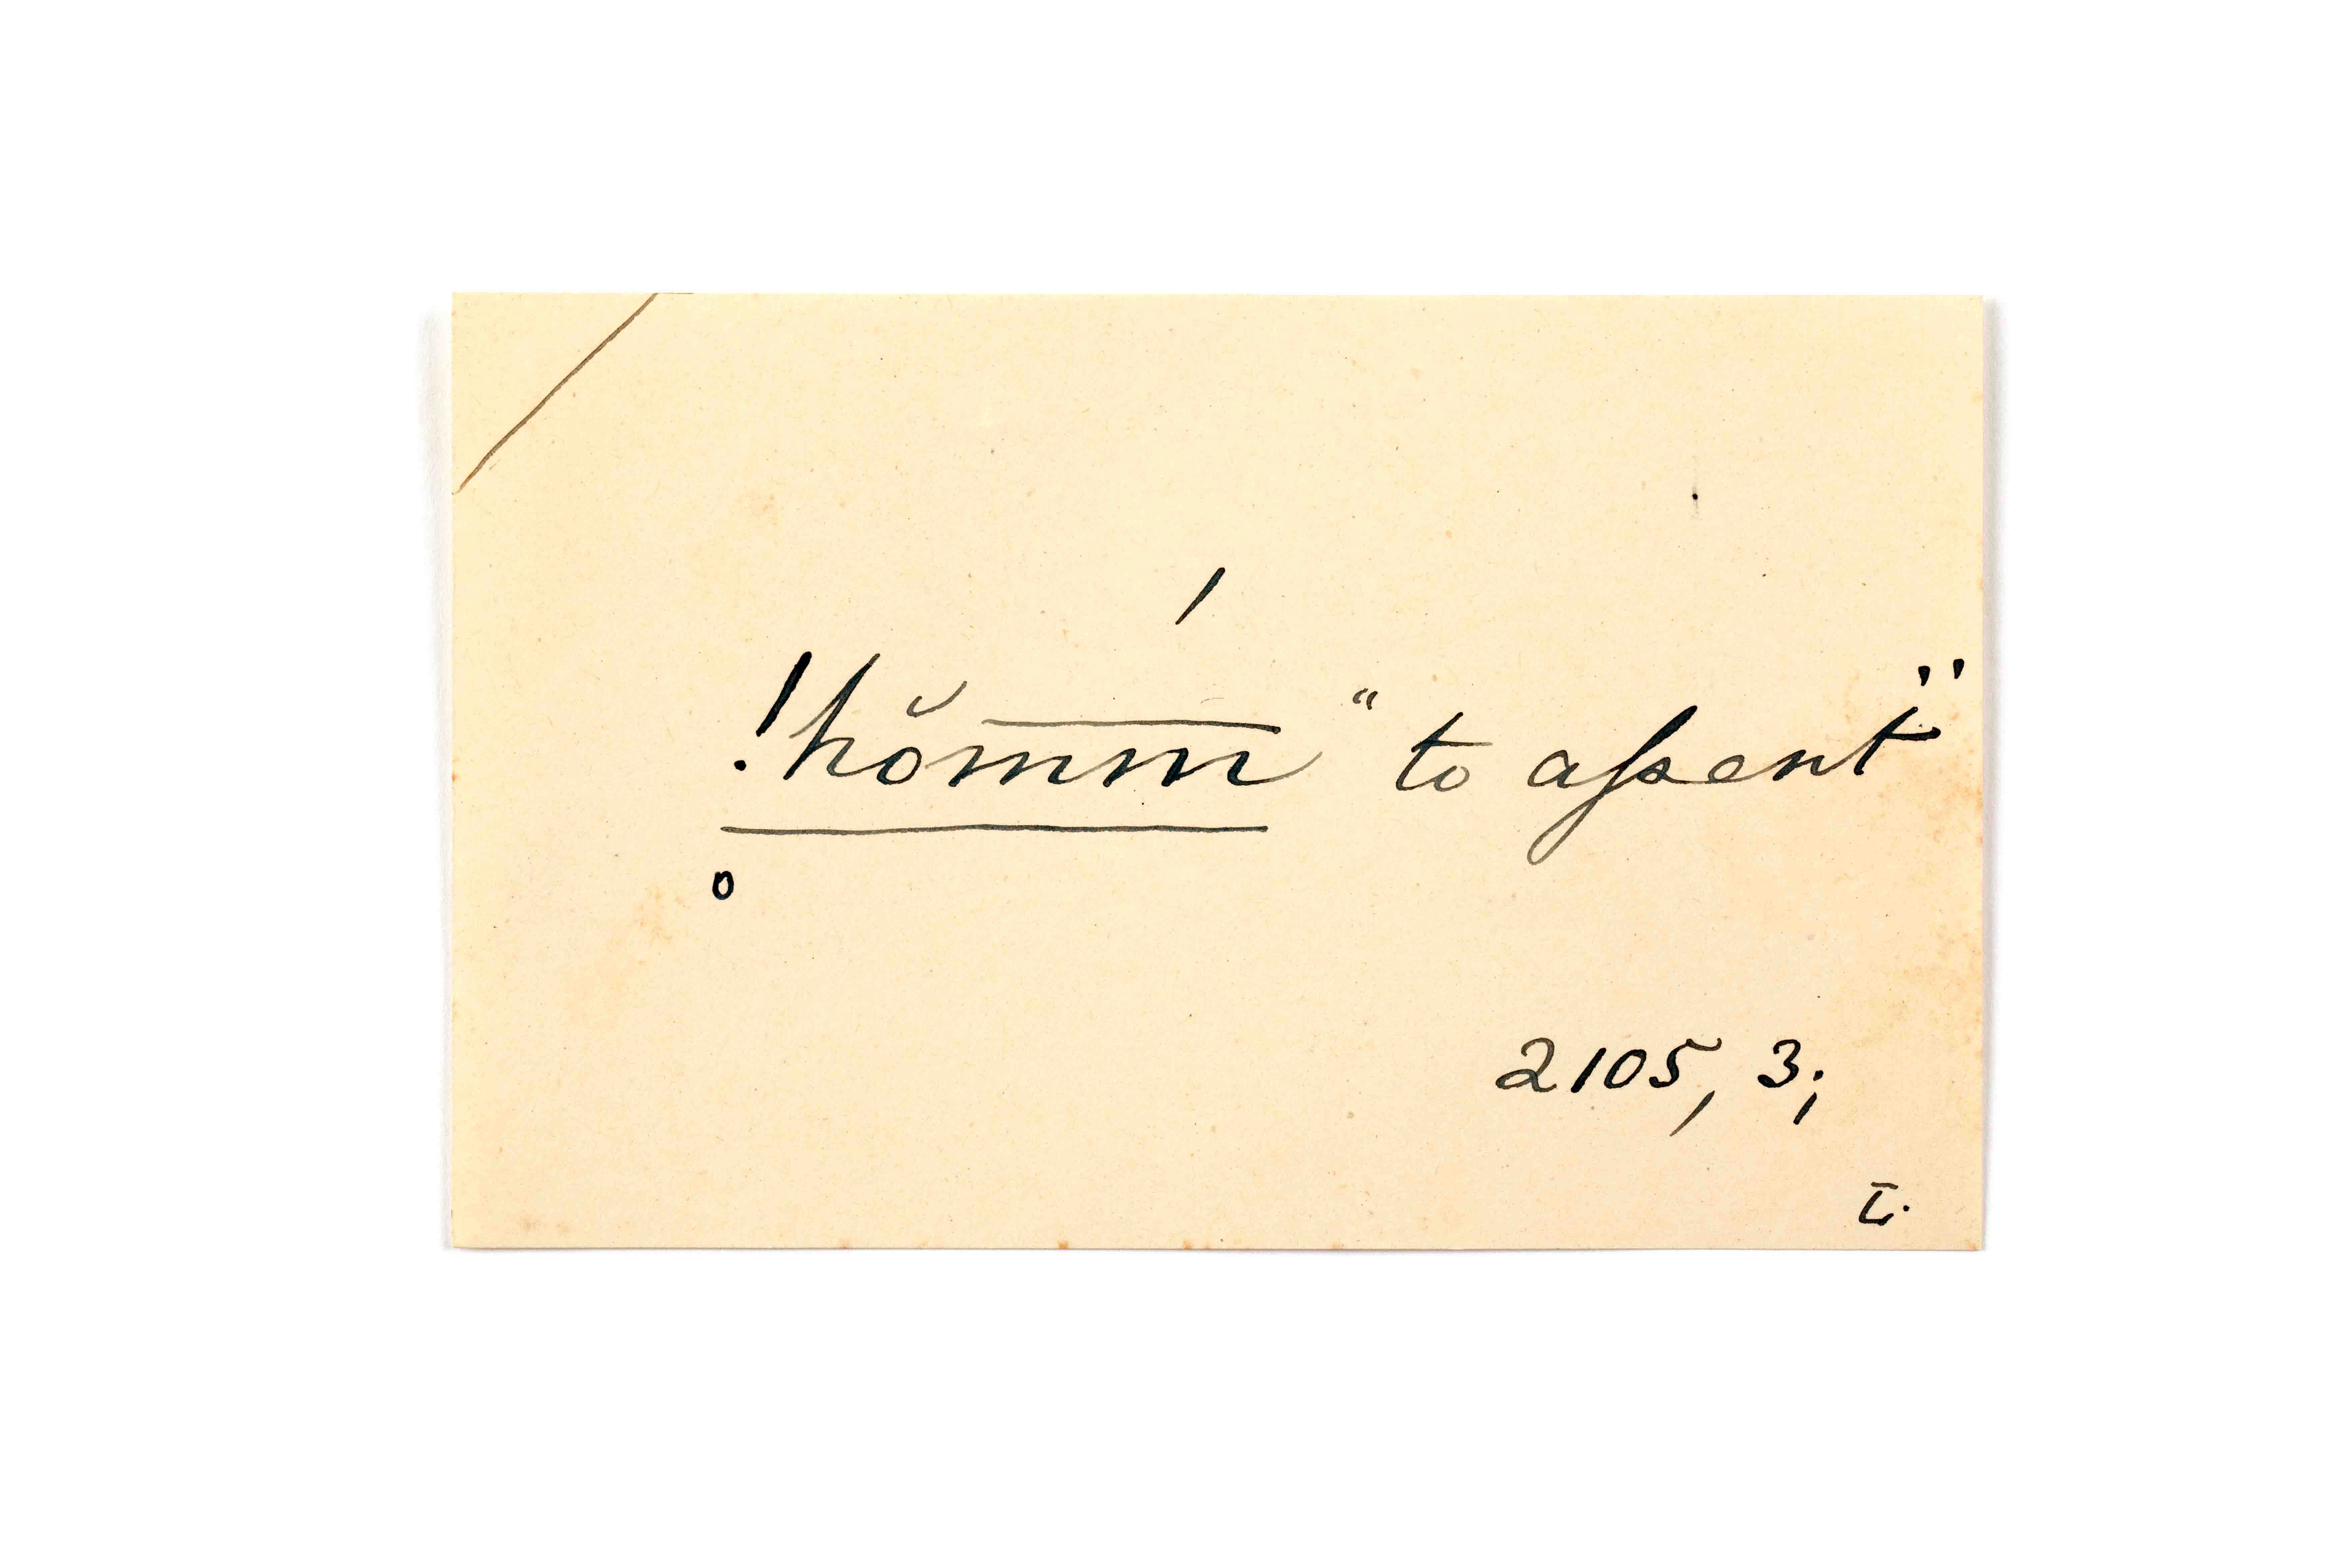 !hŏm̅m̅́ “to aſsent”
2105, 3;
L.